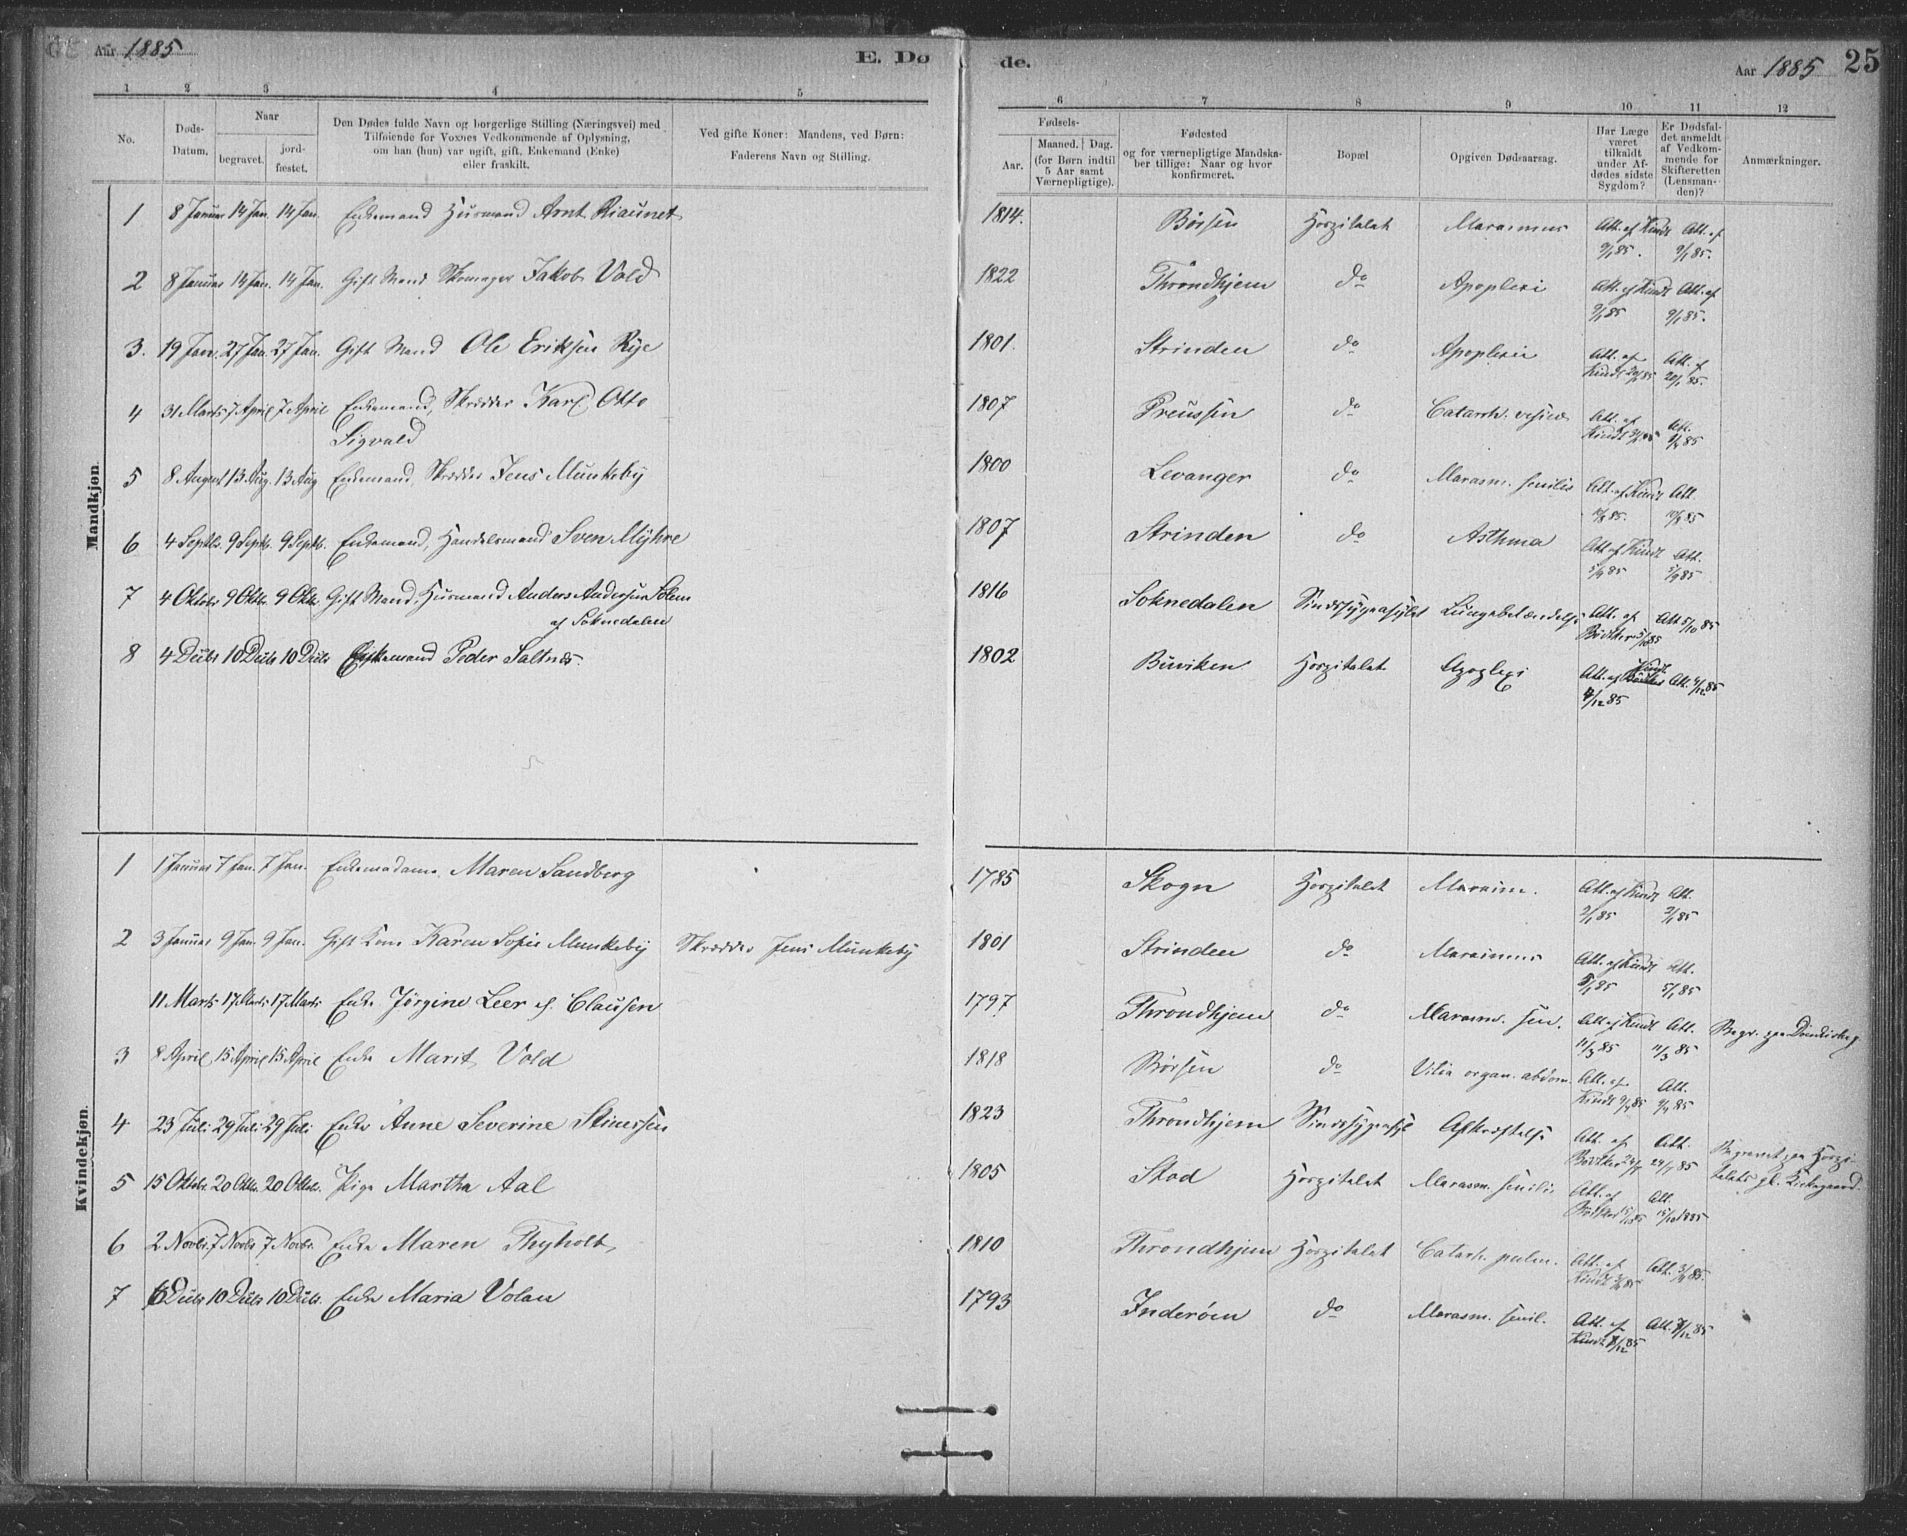 Aar 1885
E. Dø
de.
Aar 1885
25
1 2 3 4 5
6 7 8 9 10 11 12
No.
Døds-Datum.
Naar
begravet.
jord-fæstet.
Den Dødes fulde Navn og borgerlige Stilling (Næringsvei) med
Tilføiende for Voxnes Vedkommende af Oplysning,
om han (hun) var ugift, gift, Enkemand (Enke)
eller fraskilt.
Ved gifte Koner: Mandens, ved Børn:
Faderens Navn og Stilling.
Fødsels-
Aar.
Maaned. Dag.
(for Børn indtil
5 Aar samt
Værnepligtige).
Fødested
og for værnepligtige Mandska-
ber tillige: Naar og hvor
konfirmeret.
Bopæl
Opgiven Dødsaarsag.
Har Læge
været
tilkaldt
under Af-
dødes sidste
Sygdom?
Er Dødsfal-
det anmeldt
af Vedkom-
mende for
Skifteretten
(Lensman-
den)?
Anmærkninger.
Mandkjøn.
1 8 Januar 14 Jan. 14 Jan. Enkemand Husmand Arnt Riaunet 1814. Børsen Hospitalet Marasmus Att. af Kindt 9/1 85. Att. af 9/1 85.
2 8 Januar 14 Jan. 14 Jan. Gift Mand Skomager Jakob Vold 1822 Throndhjem do Apoplexi Att. af Kindt 9/1 85 Att. af 9/1 85.
3. 19 Jan. 27 Jan. 27 Jan. Gift Mand Ole Eriksen Rye 1801. Strinden do Apoplexi Att. af Kindt 20/1 85 Att. af 20/1 85.
4 31 Marts 7 April 7 April Enkemand, Skrædder Karl Otto
Sigvald 1807 Preussen do Catarrh. vesicæ Att. af Kindt
5 8 August 13 Aug. 13 Aug Enkemand, Skrædder Jens Munkeby 1800 Levanger do Marasm. senilis Att. af Kindt 10/8 85. Att. 10/8 85
6 4 Septbr. 9 Septb. 9 Septb. Enkemand, Handelsmand Sven Myhre 1807 Strinden do Asthma Att. af Kindt 5/9 85 Att. 5/9 85
7 4 Oktobr 9 Oktbr. 9 Oktb. Gift Mand, Husmand Anders Andersen Solem
af Soknedalen 1816 Soknedalen Sindssygeasylet Lungebetændelse Att. af Bødtker 5/10 85 Att 5/10 85
8 4 Decbr 10 Decbr 10 Decbr Enkemand Peder Saltnes. 1802 Buviken Hospitalet Apoplexi Att. af Kindt 4/12 85 Att. 4/12 85
Kvindekjøn.
1 1 Januar 7 Jan. 7 Jan. Enkemadame Maren Sandberg 1785 Skogn Hospitalet Marasm. Att. af Kindt 2/1 85 Att. 2/1 85
2 3 Januar 9 Jan. 9 Jan. Gift Kone Karen Sofie Munkeby Skrædder Jens Munkeby 1801 Strinden do Marasmus Att. af Kindt 5/1 85 Att. 5/1 85
11 Marts 17 Marts 17 Marts Enke Jørgine Leer af. Clausen 1797 Throndhjem do Marasm. sen. Att af Kindt 11/3 85 Att. 11/3 85 Begr. paa
3 8 April 15 April 15 April Enke Marit Vold 1818 Børsen do Vitia organ. abdom. Att. af Kindt 9/4 85 Att. 9/4 85
4 23 Juli 29 Juli 29 Juli Enke Anne Severine Steinessen 1823 Throndhjem Sindssygeasyl Afkræftelse Att. af Bødtker 24/7 Att. 24/7 85
5 15 Oktobr. 20 Oktb. 20 Oktob. Pige Martha Aal 1805 Stod Hospitalet Marasm. senilis Att. af Bødtker 15/10 85 Att. 15/10 1885 Begravet paa Hospi-
talets gl. Kirkegaard.
6 2 Novbr. 7 Novbr 7 Novbr. Enke Maren Thyholt 1810 Throndhjem Hospitalet Catarrh. pulm. Att. af Kindt 3/11 85 Att. 3/11 85.
7 6 Decbr 10 Decbr 10 Decbr. Enke Maria Volan 1793 Inderøen do Marasm. senil. Att. af Kindt 8/12 85 Att. 8/12 85